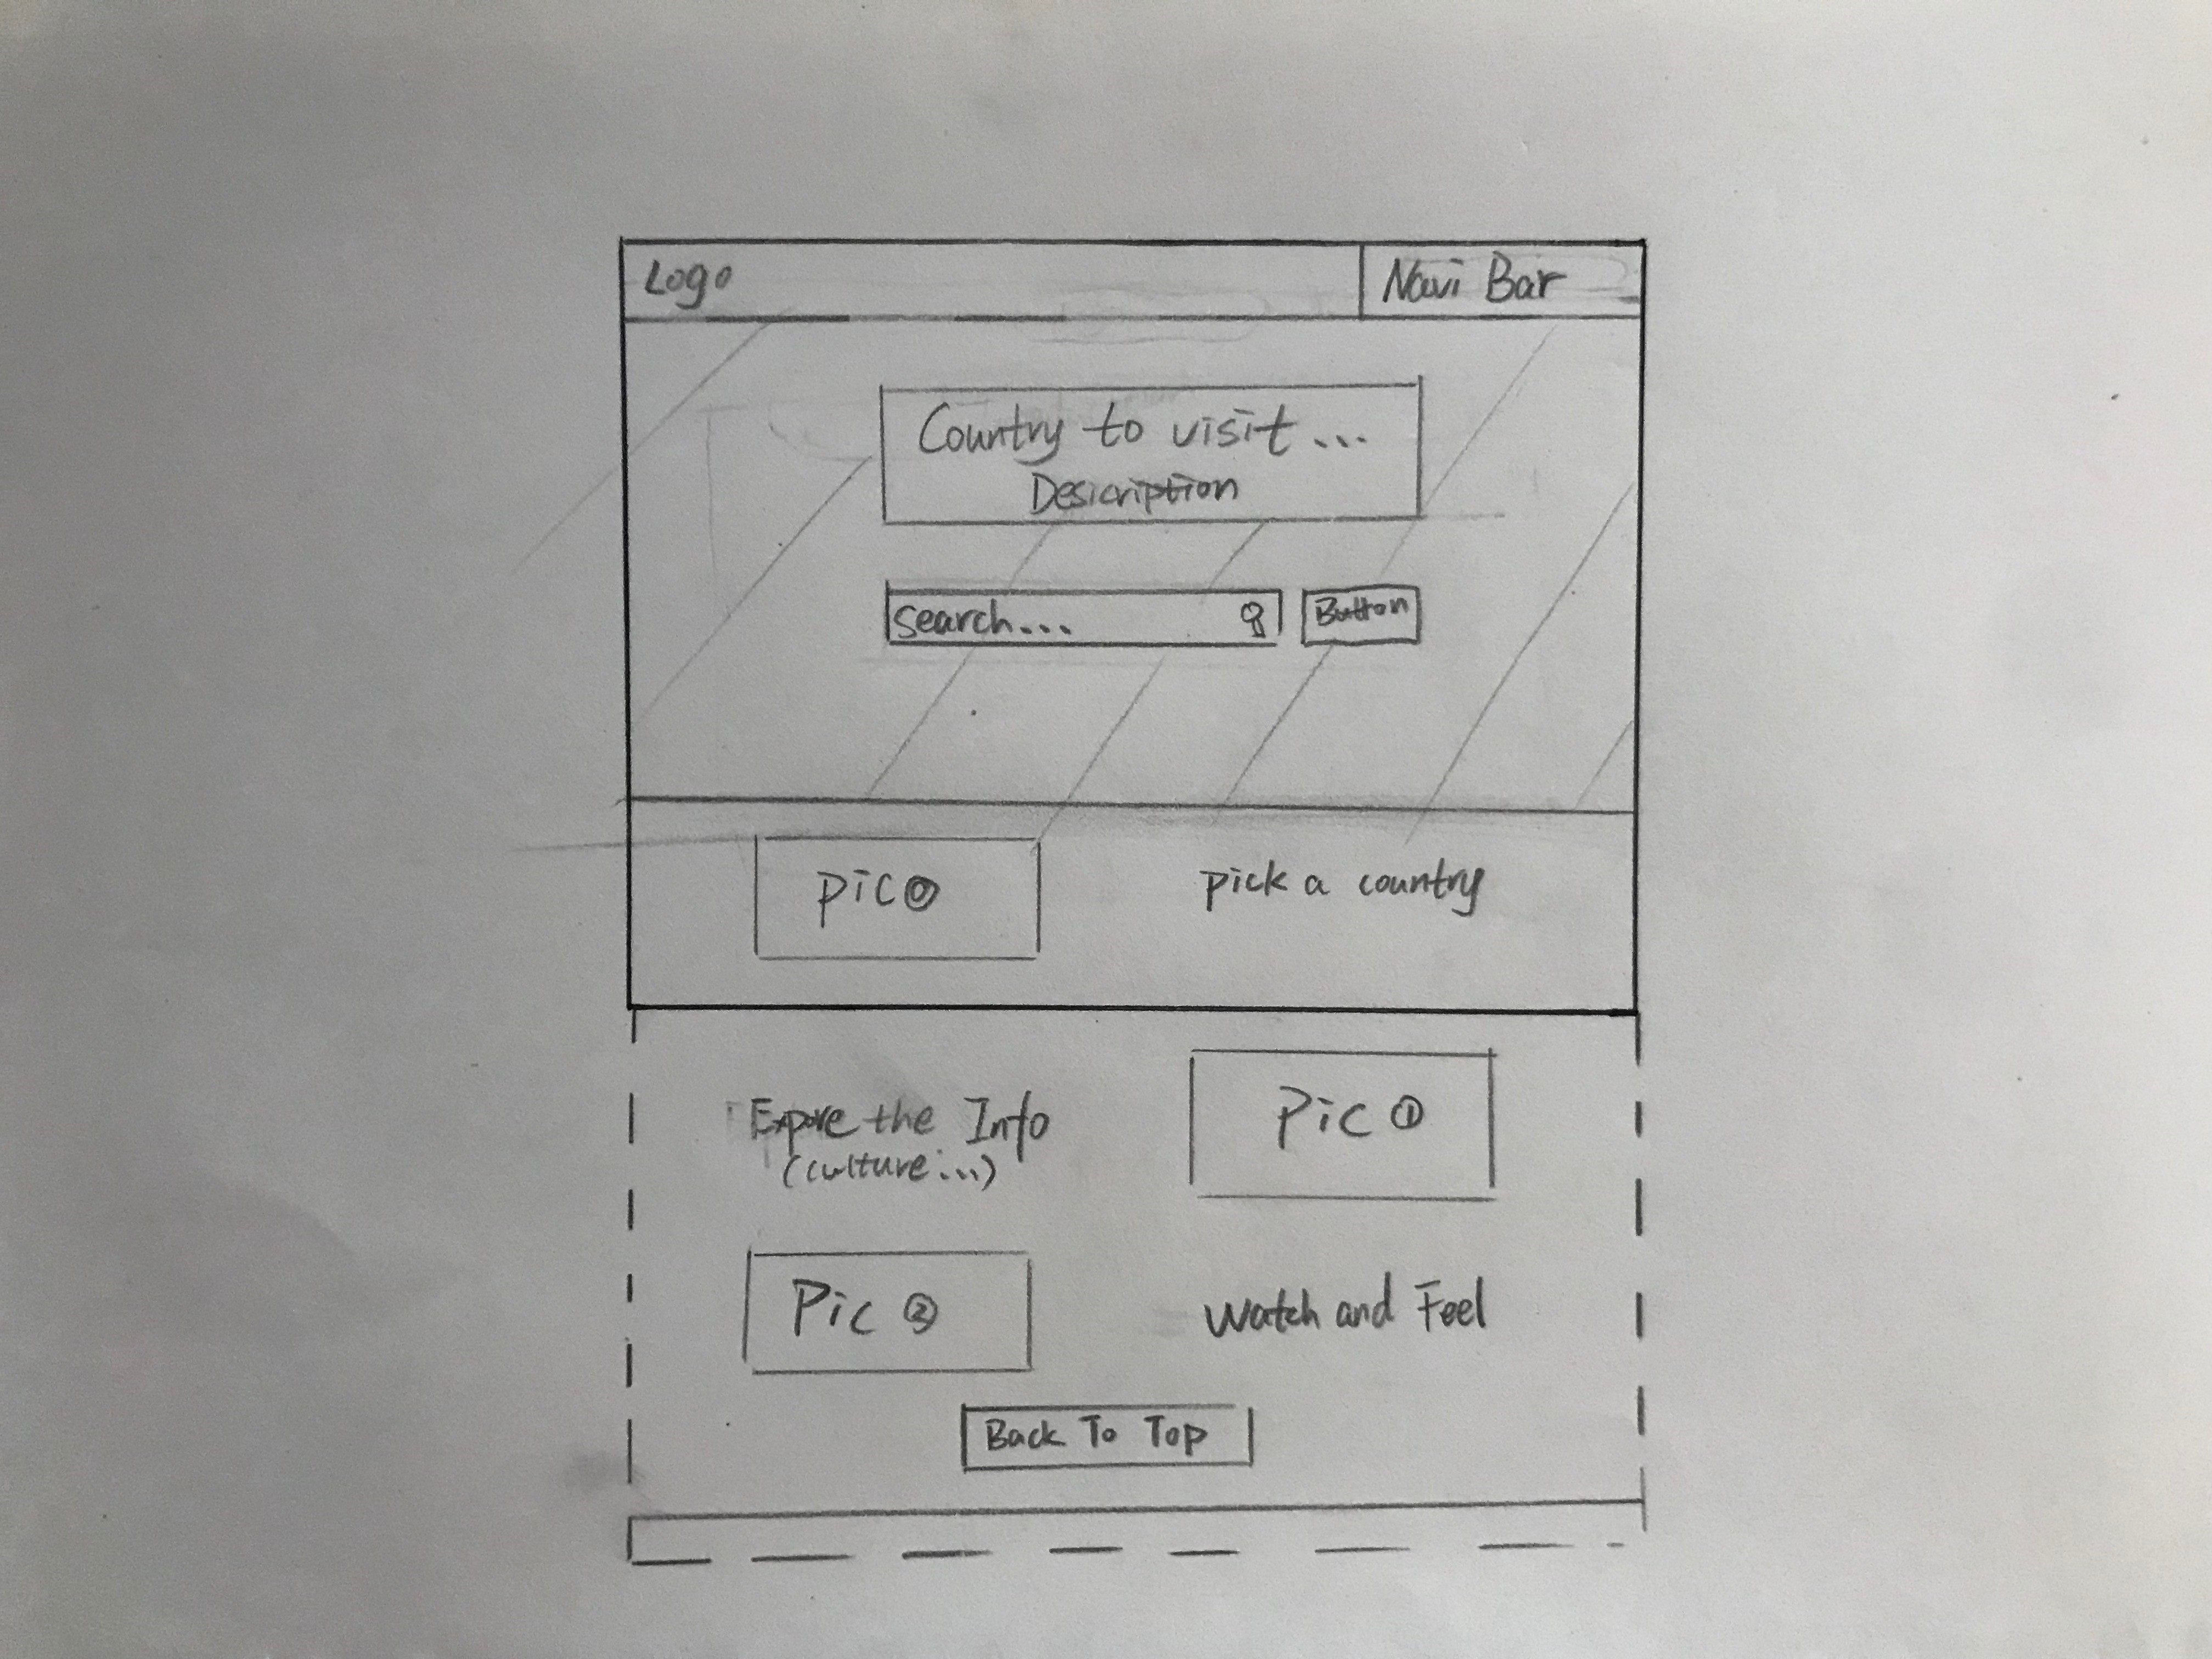 Logo
Navi Bar
Country to visit...
Desicription
search...
Button
pic ⓪
pick a country
Expore the Info
(culture...)
Pic ①
Pic ②
Watch and Feel
Back To Top